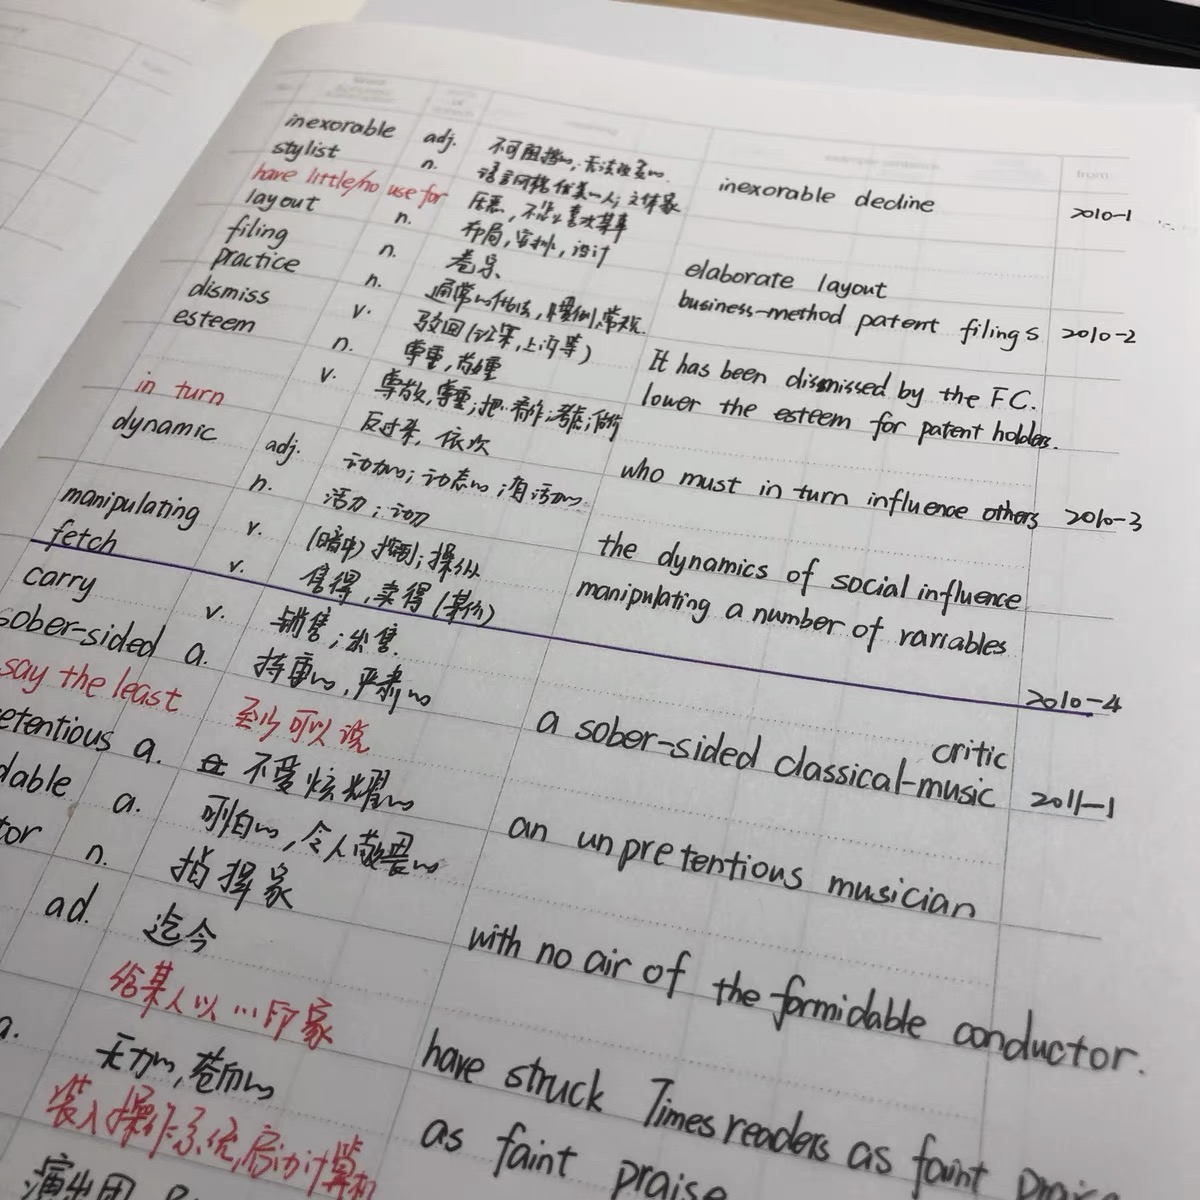 meaning example sentence from
inexorable adj. 不可阻挡的, 无法改变的. inexorable decline 2010-1
stylist n. 语言风格优美一人; 文体家
have little/no use for 厌恶, 不怎么喜欢某事
layout n. 布局, 安排, 设计 elaborate layout
filing n. 卷宗 business-method patent filings 2010-2
practice n. 通常的做法, 惯例, 常规.
dismiss v. 驳回(证案, 上诉等) It has been dismissed by the FC.
esteem n. 尊重, 敬重 lower the esteem for patent holders.
v. 尊敬, 尊重; 把…看作; 考虑;
in turn 反过来, 依次 who must in turn influence others 2010-3
dynamic adj. 动力的; 动态的; 有活力的
n. 活力; 动力 the dynamics of social influence
manipulating v. (暗中) 控制; 操纵 manipulating a number of variables
fetch v. 售得, 卖得 (某价) 2010-4
carry v. 销售; 出售.
sober-sided a. 持重的, 严肃的 a sober-sided classical-music critic 2011-1
say the least 至少可以说
etentious a. 不爱炫耀的 an unpretentious musician
dable a. 可怕的, 令人敬畏的
tor n. 指挥家 with no air of the formidable conductor.
ad. 迄今
给某人以…印象 have struck Times readers as faint praise
a. 无力的, 苍白的 as faint praise
装入操作系统, 启动计算机
演出团